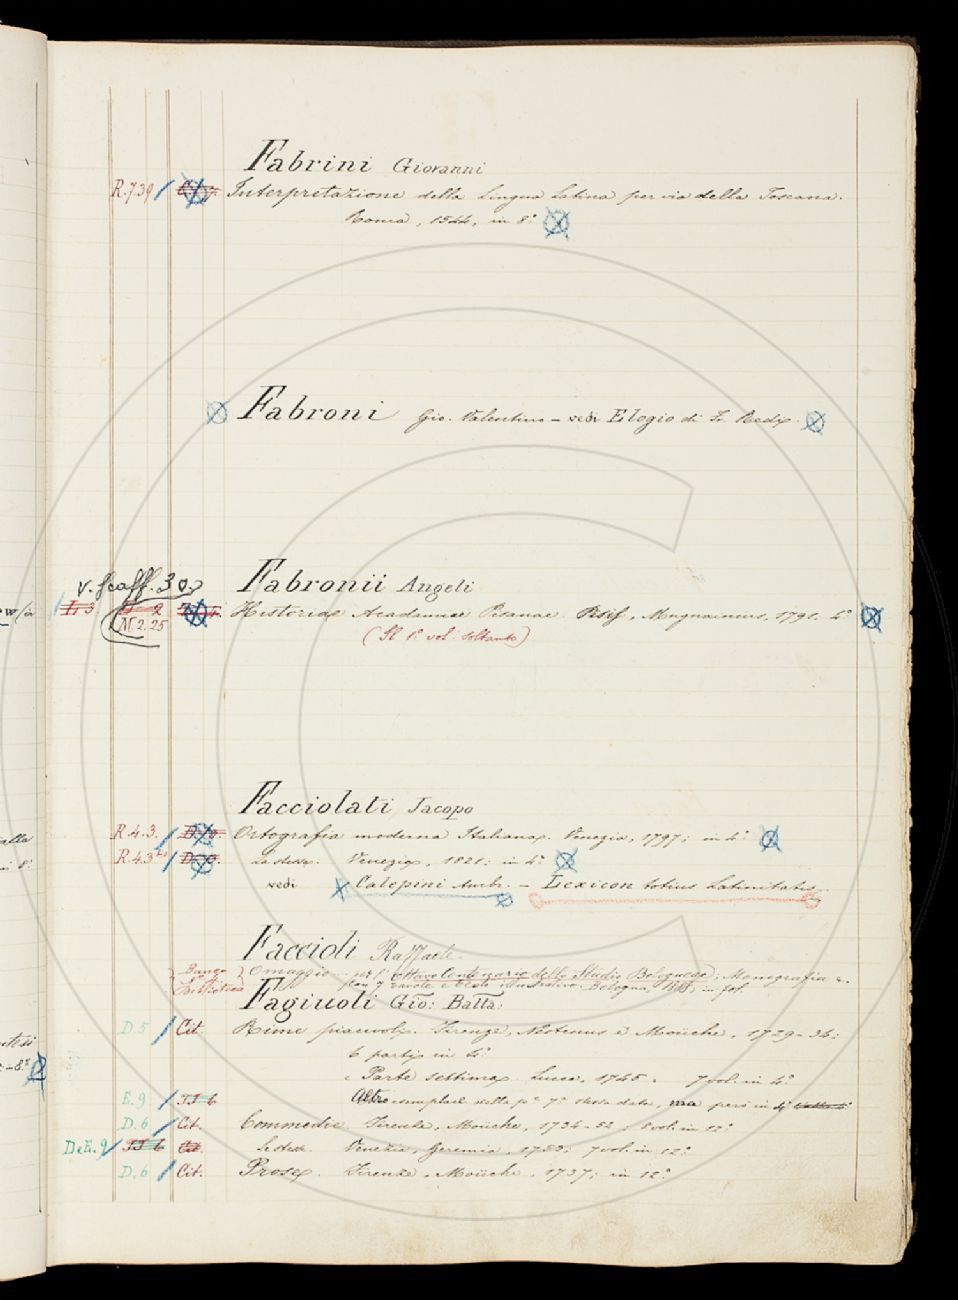 Fabrini Giovanni
R.7.39 Interpretazione della Lingua Latina per via della Toscana.
Roma, 1544, in 8°
Fabroni Gio. Valentino – vedi Elogio di Fr. Redi
v. Scaff. 30
Fabronii Angeli
I. 3 Historiae Academiae Pisanae. Pisis, Mugnainius, 1791. 4°
M.2.25
(Il 1° vol. soltanto)
Facciolati Jacopo
R.4.3. Ortografia moderna Italiana. Venezia, 1797; in 4°
R.4.3 La stessa. Venezia, 1821; in 4°
vedi Calepini Amb. – Lexicon totius Latinitatis.
Faccioli Raffaele
Omaggio per l'ottavo Centenario dello Studio Bolognese; Monografia
con 7 tavole e testo illustrativo. Bologna, in fol.
Fagiuoli Gio: Batta:
D.5 Cit. Rime piacevoli. Firenze, Nestenus e Moücke, 1729-34:
6 parti in 4°
Parte settima. Lucca, 1745. 7 vol: in 4°
E.9. II 6 Altro esemplare della pe 7a stessa data, ma però in
D.6 Cit. Commedie. Firenze, Moücke, 1734-52; in 12°
D e E. 9 II 6 Cit. Le stesse. Venezia, Geremia, 1753; 7 vol: in 12°
D.6 Cit. Prose. Firenze, Moücke, 1737; in 12°